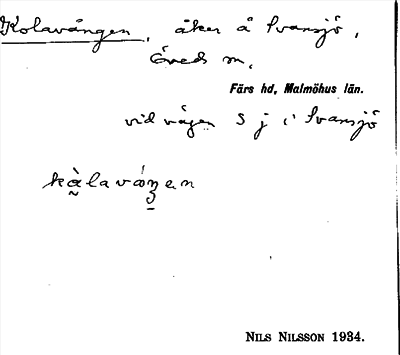 Kolavången, åker å Svansjö,
Öveds sn.
Färs hd, Malmöhus län.
vid vägen S j i Svansjö
kàlaváŋen
NILS NILSSON 1934.